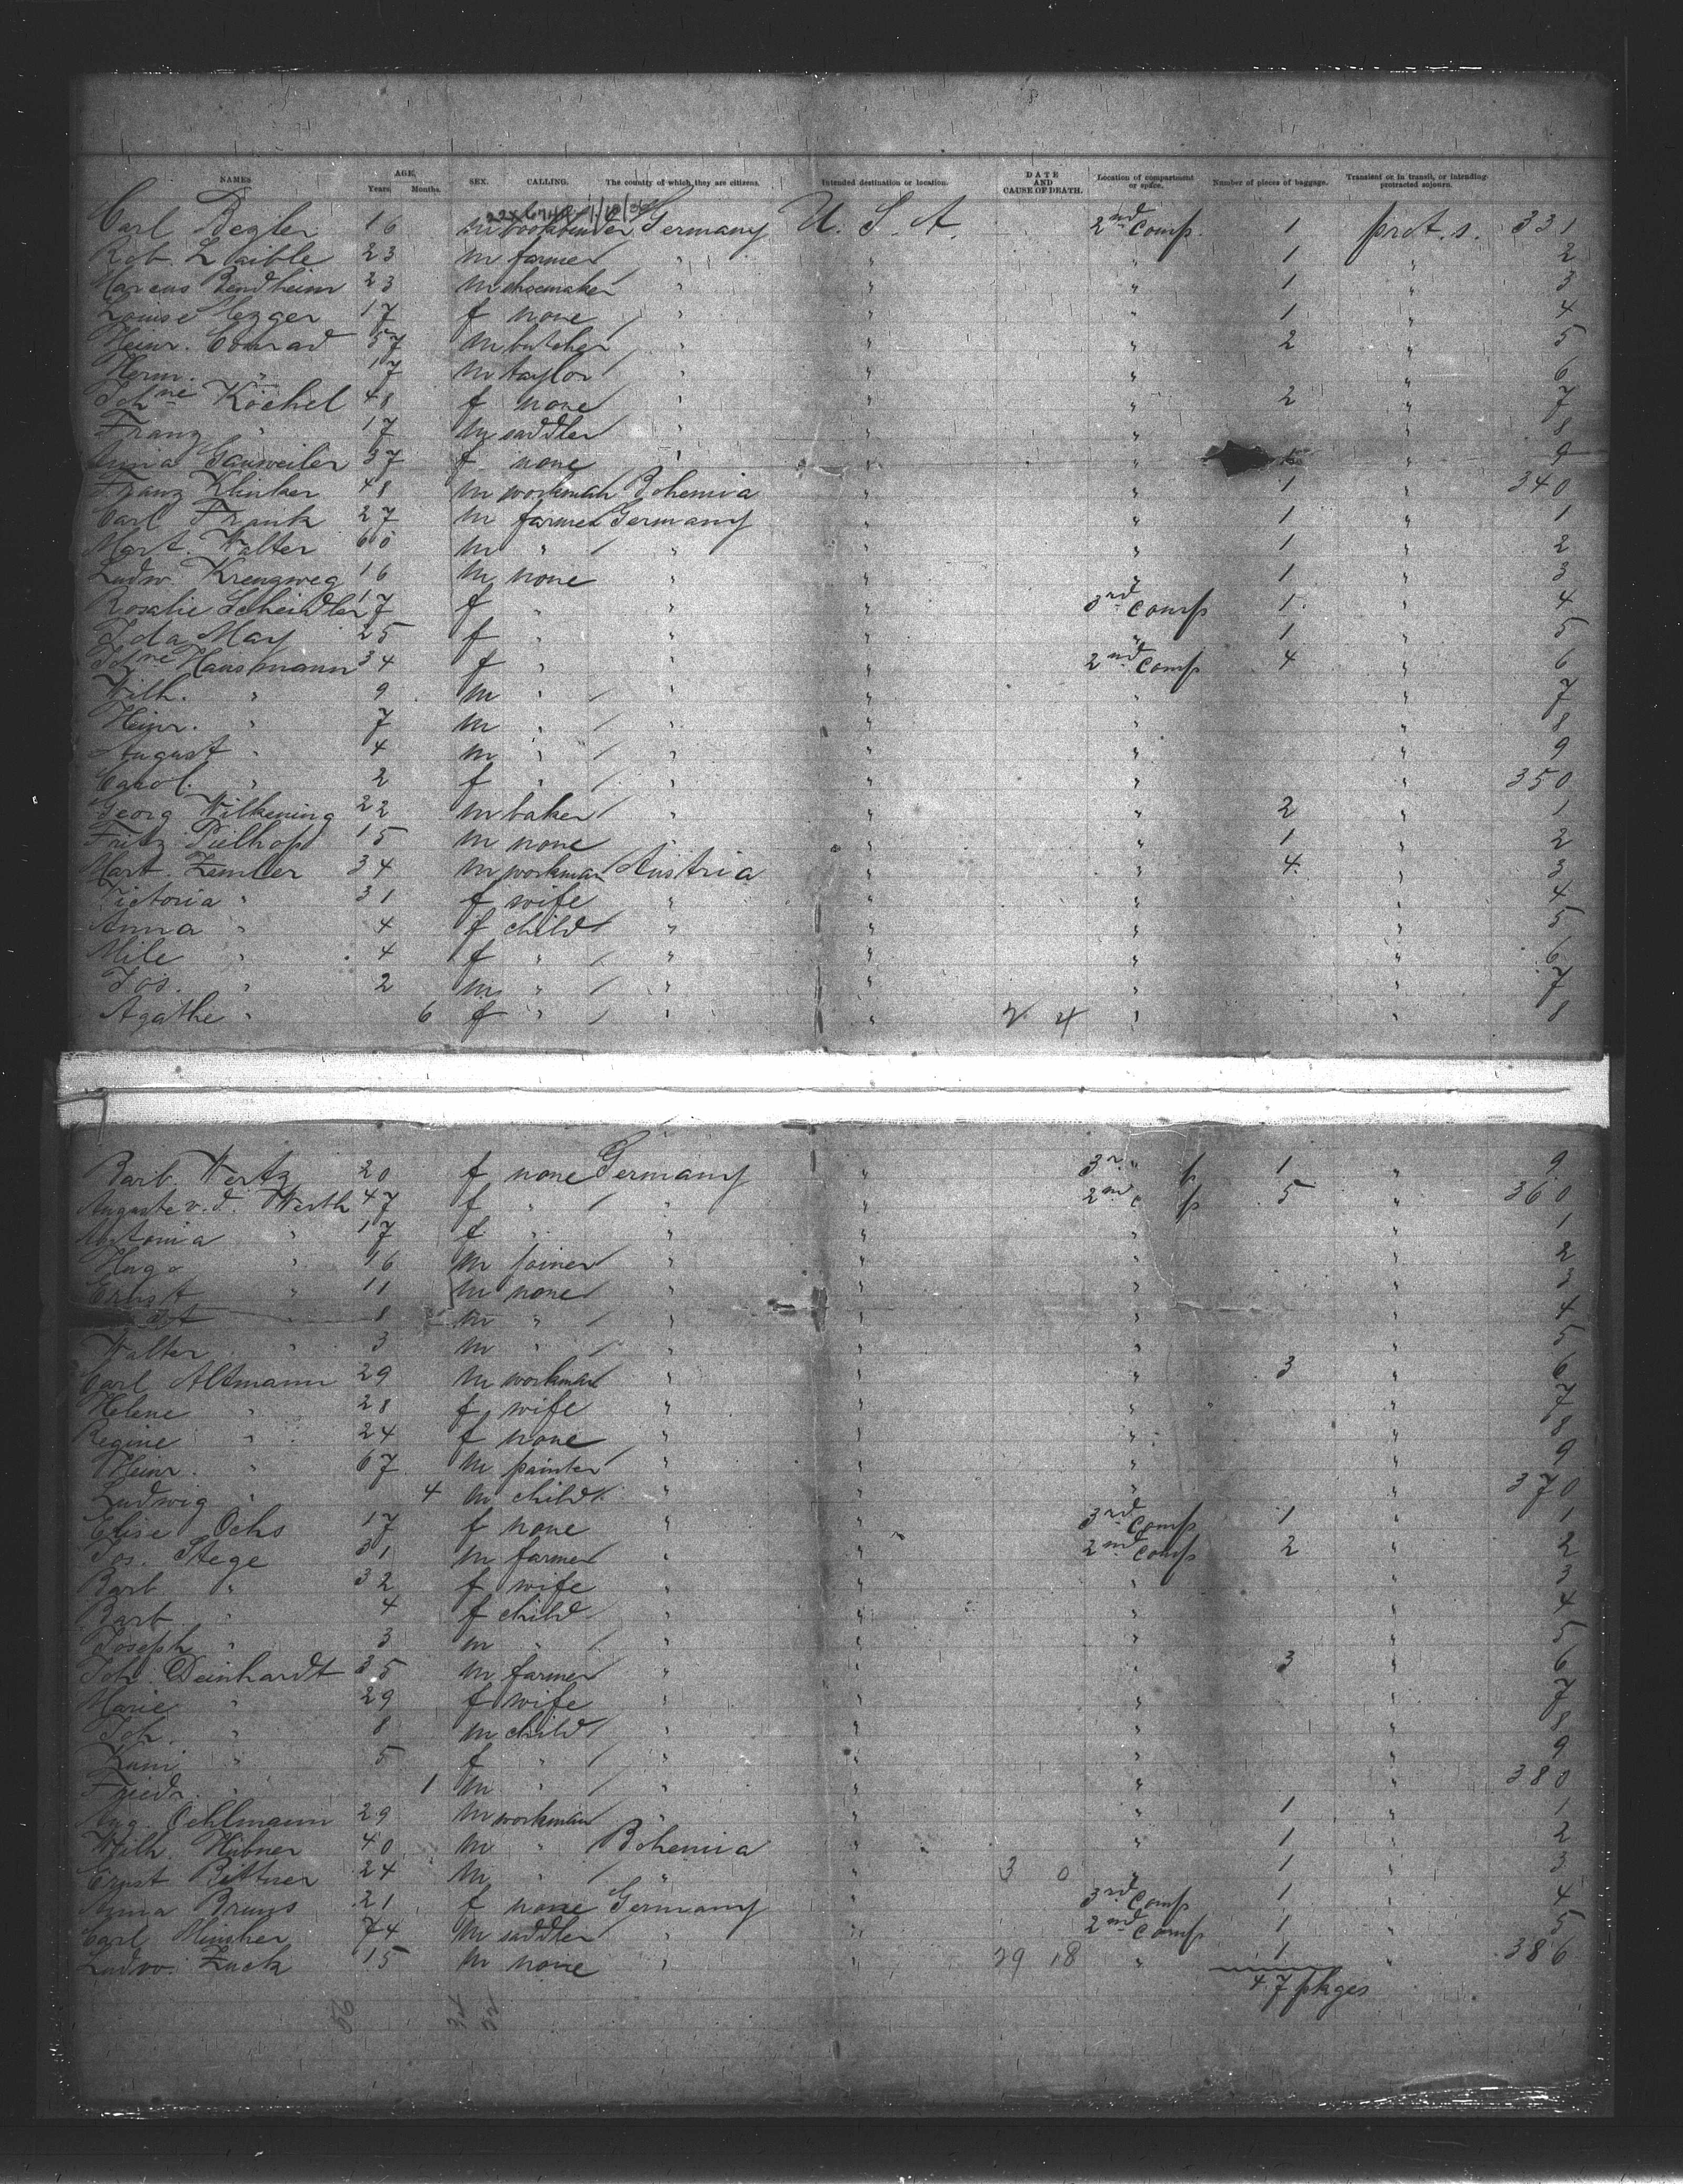 8
NAMES. AGE. Years. Months. SEX. CALLING. The country of which they are citizens. Intended destination or location. DATE AND CAUSE OF DEATH. Location of compartment or space. Number of pieces of baggage. Transient or in transit, or intending protracted sojourn.
Carl 16 m bookbinder Germany U. S. A. 2nd comp 1 prot. s. 331
Rob. Laible 23 m farmer " " " 1 " 2
Marcus Bendheim 23 m shoemaker " " " 1 " 3
Louise Mezger 17 f none " " " 1 " 4
Heinr. Conrad 57 m butcher " " " 2 " 5
Herm. " 17 m taylor " " " " 6
Johne Köchel 48 f none " " " 2 " 7
Franz " 17 m saddler " " " " 8
Anna Gauweiler 37 f none " " " " 9
Franz Klinker 48 m workman Bohemia " " 1 " 340
Carl Frank 27 m farmer Germany " " 1 " 1
Mart. Walter 60 m " " " " 1 " 2
Ludw. Krengweg 16 m none " " " 1 " 3
Rosalie Scheidler 17 f " " " 3rd comp 1 " 4
Ida May 25 f " " " " 1 " 5
Johne Hausmann 34 f " " " 2nd comp 4 " 6
Wilh. " 9 m " " " " " 7
Heinr. " 7 m " " " " " 8
August " 4 m " " " " " 9
Carol. " 2 f " " " " " 350
Georg Wilkening 22 m baker " " " 2 " 1
Fritz Pielhop 15 m none " " " 1 " 2
Mart. Zemler 34 m workman Austria " " 4 " 3
Victoria " 31 f wife " " " " 4
Anna " 4 f child " " " " 5
Mile " 4 f " " " " " 6
Jos. " 2 m " " " " " 7
Agathe " 6 f " " " 2 4 " " 8
Barb. Wertz 20 f none Germany " 3r p 1 " 9
Auguste v. d. Werth 47 f " " " 2nd c p 5 " 360
Antonia " 17 f " " " " " 1
Hugo " 16 m joiner " " " " 2
Ernst " 11 m none " " " " 3
" 8 m " " " " " 4
Walter " 3 m " " " " " 5
Carl Altmann 29 m workman " " " 3 " 6
Helene " 28 f wife " " " " 7
Regine " 24 f none " " " " 8
Heinr. " 67 m painter " " " " 9
Ludwig " 4 m child " " " " 370
Elise Ochs 17 f none " " 3rd comp 1 " 1
Jos. Stege 31 m farmer " " 2nd comp 2 " 2
Barb. " 32 f wife " " " " 3
Barb " 4 f child " " " " 4
Joseph " 3 m " " " " " 5
Joh. Deinhardt 35 m farmer " " " 3 " 6
Marie " 29 f wife " " " " 7
Joh. " 8 m child " " " " 8
" 5 f " " " " " 9
Friedr. " 1 m " " " " " 380
Aug. Oehlmann 29 m workman " " " 1 " 1
Wilh. Hübner 40 m " Bohemia " " 1 " 2
Ernst Bittner 24 m " " " 3 0 " 1 " 3
Anna Bruns 21 f none Germany " 3rd comp 1 " 4
Carl Minsher 74 m saddler " " 2nd comp 1 " 5
Ludw. Zuck 15 m none " " 29 18 " 1 " 386
47 pkges